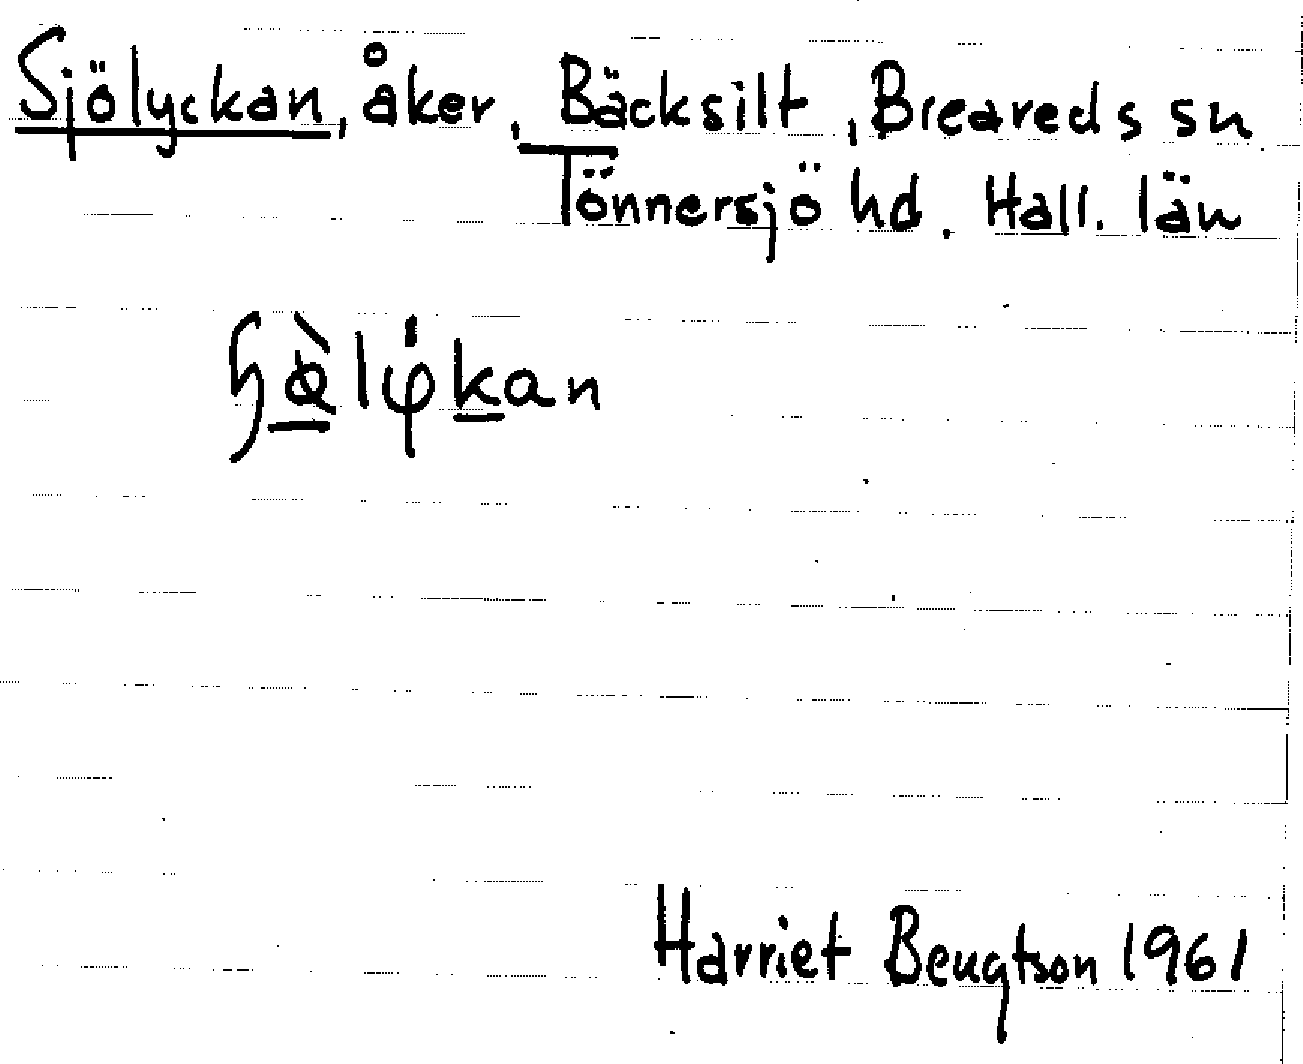 Sjölyckan, åker, Bäcksilt, Breareds sn
Tönnersjö hd. Hall. län
Harriet Bengtson 1961